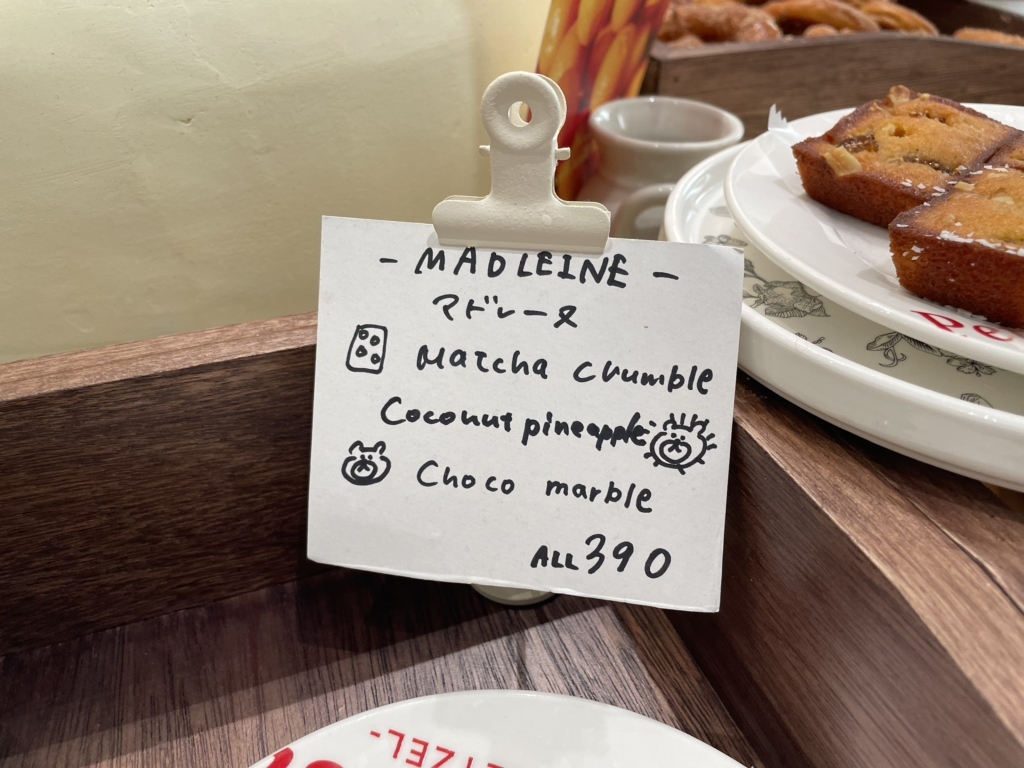 - MADLEINE -
マドレーヌ
Matcha crumble
Coconut pineapple
Choco marble
ALL 390